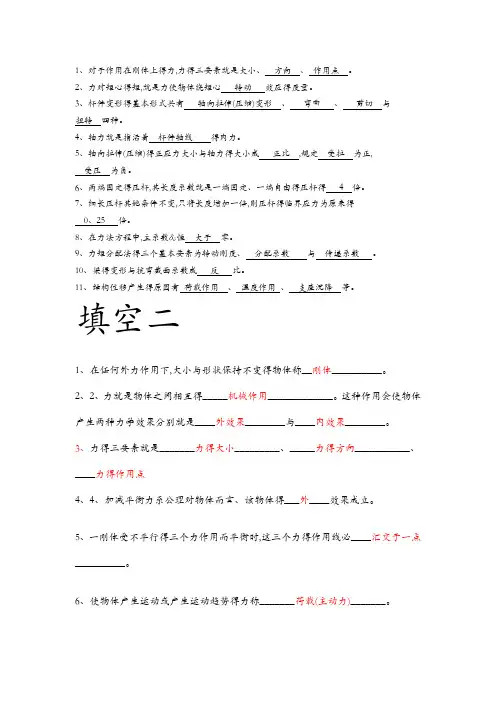 1、对于作用在刚体上得力,力得三要素就是大小、 方向 、 作用点 。
2、力对矩心得矩,就是力使物体绕矩心 转动 效应得度量。
3、杆件变形得基本形式共有 轴向拉伸(压缩)变形 、 弯曲 、 剪切 与
扭转 四种。
4、轴力就是指沿着 杆件轴线 得内力。
5、轴向拉伸(压缩)得正应力大小与轴力得大小成 正比 ,规定 受拉 为正,
受压 为负。
6、两端固定得压杆,其长度系数就是一端固定、一端自由得压杆得 4 倍。
7、细长压杆其她条件不变,只将长度增加一倍,则压杆得临界应力为原来得
0、25 倍。
8、在力法方程中,主系数δii恒 大于 零。
9、力矩分配法得三个基本要素为转动刚度、 分配系数 与 传递系数 。
10、梁得变形与抗弯截面系数成 反 比。
11、结构位移产生得原因有 荷载作用 、 温度作用 、 支座沉降 等。
填空二
1、在任何外力作用下,大小与形状保持不变得物体称__刚体__________。
2、2、力就是物体之间相互得_____机械作用_____________。这种作用会使物体
产生两种力学效果分别就是____外效果________与____内效果________。
3、力得三要素就是_______力得大小_________、_____力得方向___________、
____力得作用点
4、4、加减平衡力系公理对物体而言、该物体得___外____效果成立。
5、一刚体受不平行得三个力作用而平衡时,这三个力得作用线必____汇交于一点
__________。
6、使物体产生运动或产生运动趋势得力称_______荷载(主动力)_______。